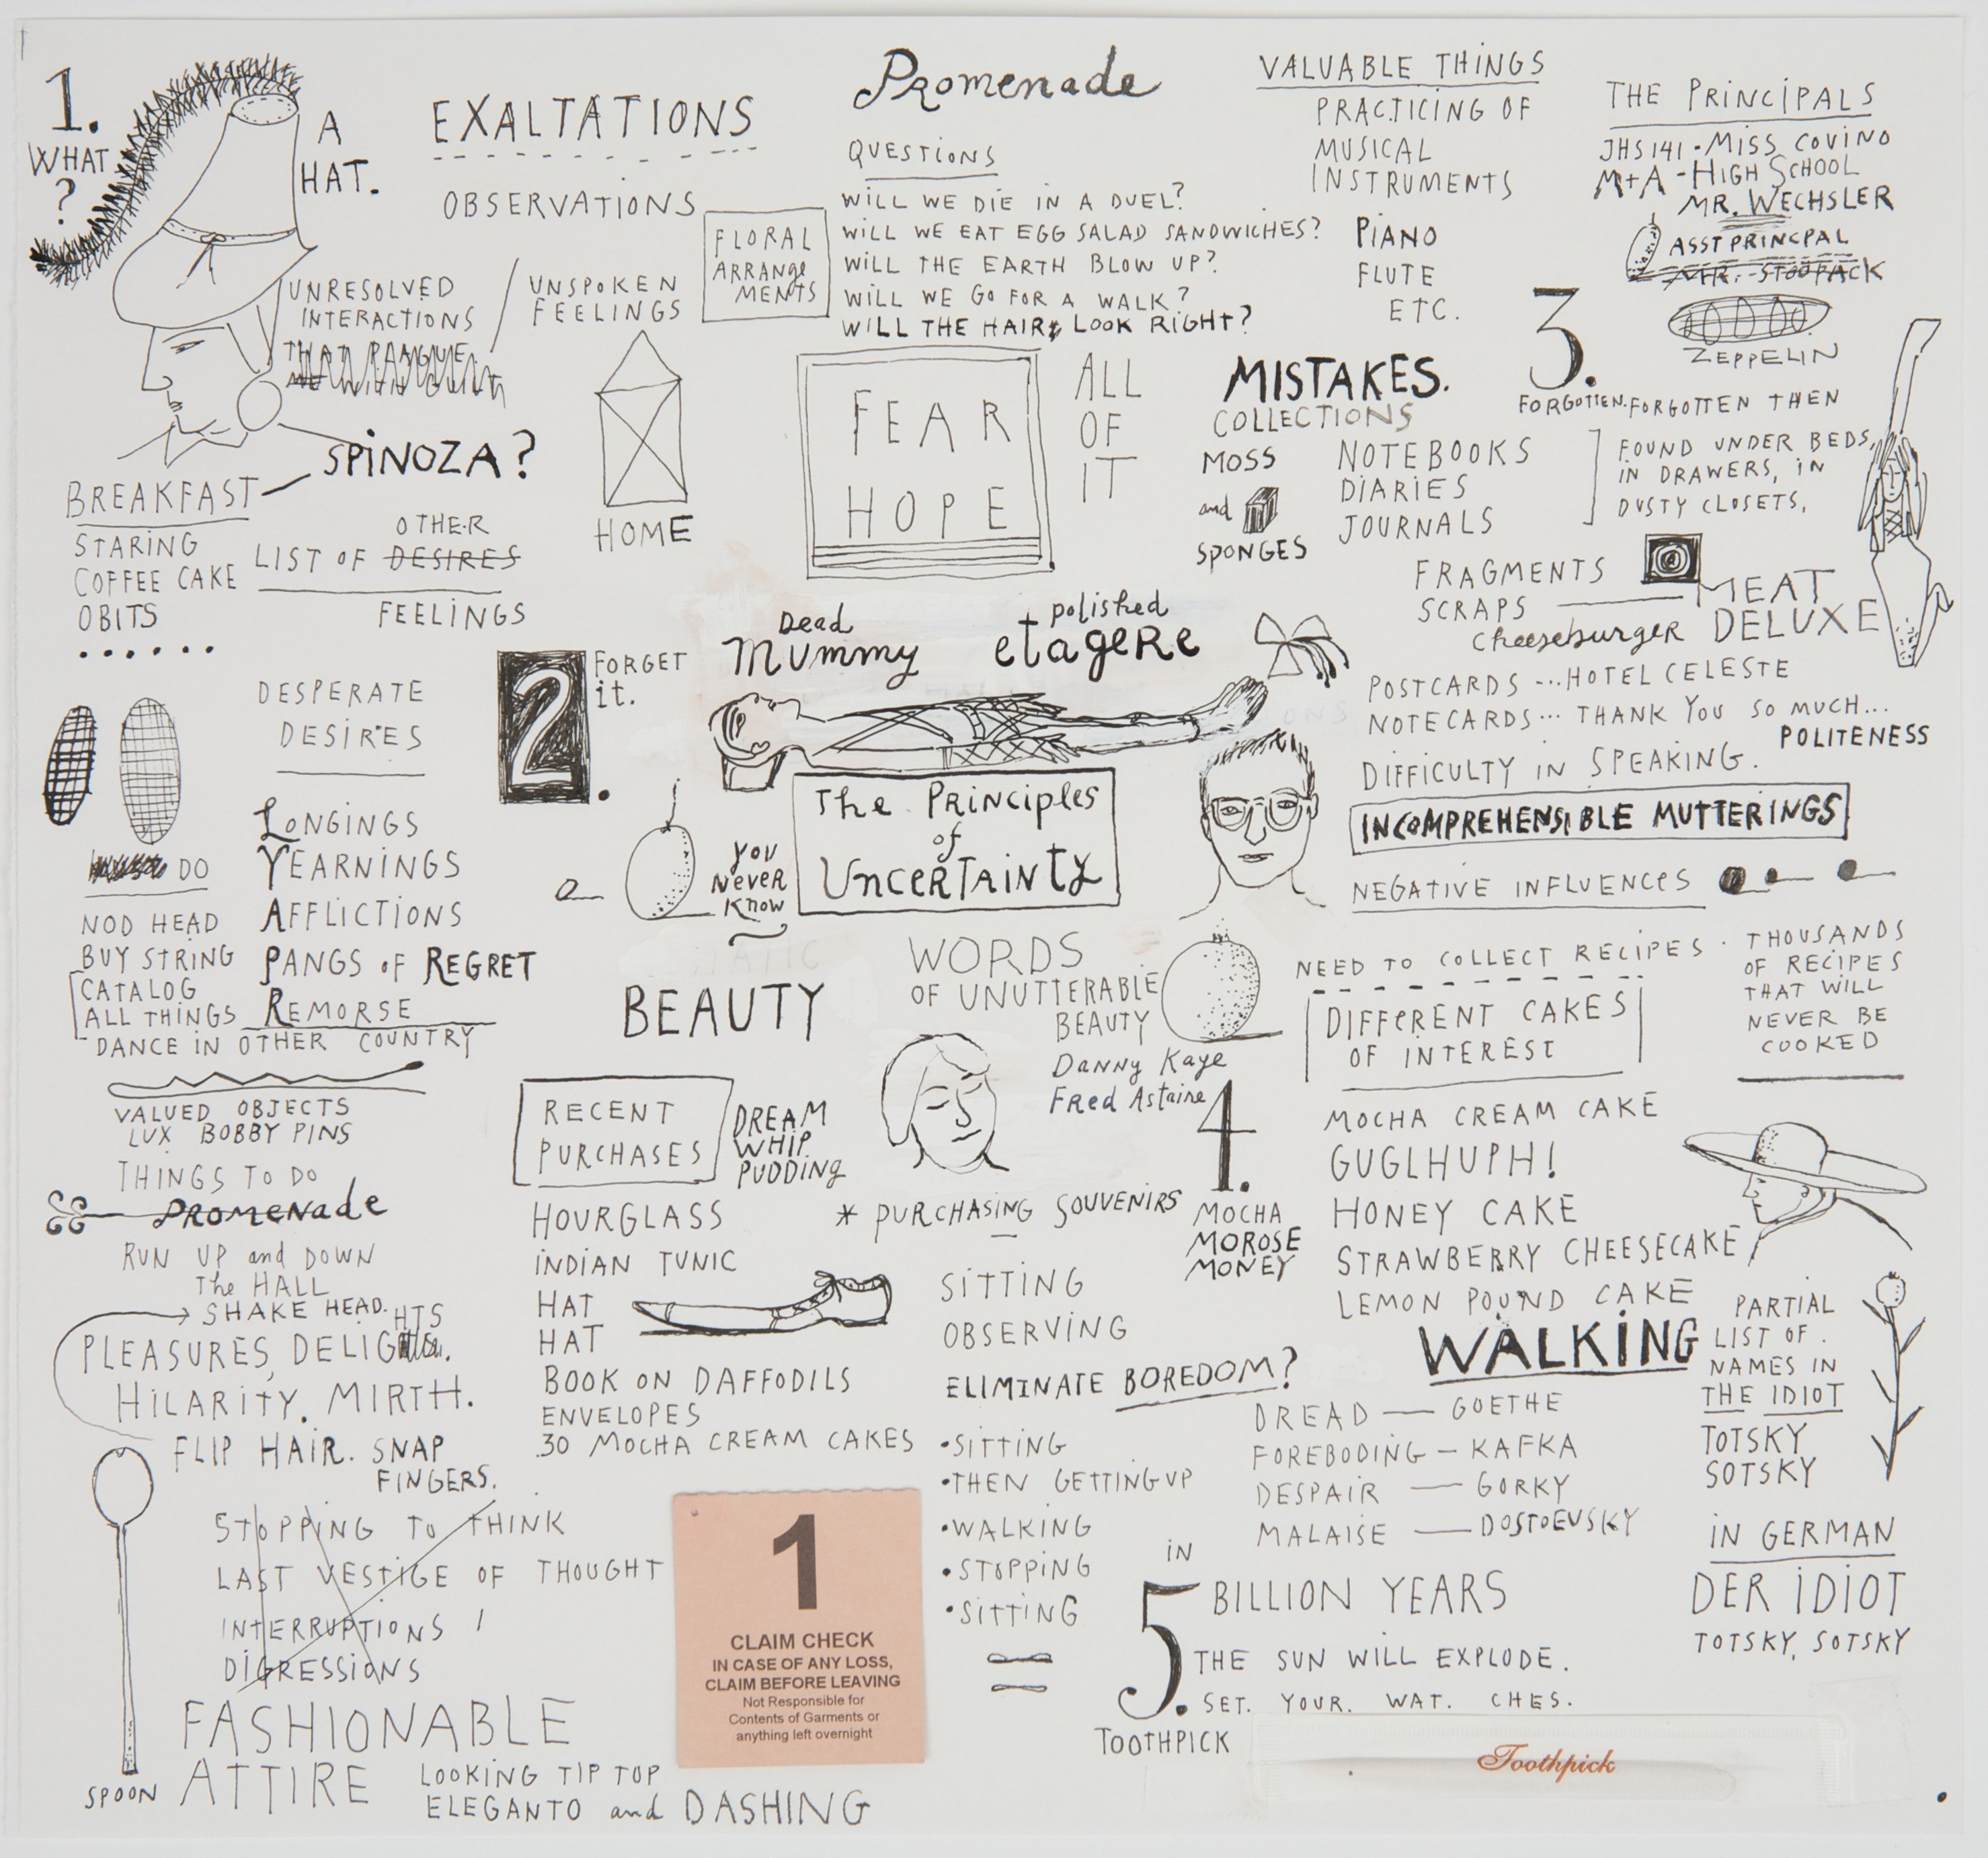 1.
WHAT
?
A
HAT.
EXALTATIONS
OBSERVATIONS
UNRESOLVED
INTERACTIONS
THAT PLAGUE
ME WITH GUILT
UNSPOKEN
FEELINGS
FLORAL
ARRANGE
MENTS
Promenade
QUESTIONS
WILL WE DIE IN A DUEL?
WILL WE EAT EGG SALAD SANDWICHES?
WILL THE EARTH BLOW UP?
WILL WE GO FOR A WALK?
WILL THE HAIR LOOK RIGHT?
VALUABLE THINGS
PRACTICING OF
MUSICAL
INSTRUMENTS
PIANO
FLUTE
ETC.
THE PRINCIPALS
JHS 141 - MISS COVINO
M+A - HIGH SCHOOL
MR. WECHSLER
ASST PRINCPAL
MR. STOOPACK
ZEPPELIN
3.
FORGOTTEN. FORGOTTEN THEN
FOUND UNDER BEDS,
IN DRAWERS, IN
DUSTY CLOSETS,
SPINOZA?
BREAKFAST
STARING
COFFEE CAKE
OBITS
......
OTHER
LIST OF DESIRES
FEELINGS
HOME
FEAR
HOPE
ALL
OF
IT
MISTAKES.
COLLECTIONS
MOSS
and
SPONGES
NOTEBOOKS
DIARIES
JOURNALS
FRAGMENTS
SCRAPS
MEAT
DELUXE
Cheeseburger
POSTCARDS ... HOTEL CELESTE
NOTECARDS ... THANK YOU SO MUCH...
POLITENESS
DIFFICULTY IN SPEAKING.
INCOMPREHENSIBLE MUTTERINGS
NEGATIVE INFLUENCES
DESPERATE
DESIRES
2.
FORGET
it.
Dead
Mummy
polished
etagere
The Principles
of
Uncertainty
YOU
NeVeR
KNow
LONGINGS
YEARNINGS
AFFLICTIONS
PANGS of REGRET
REMORSE
DO
NOD HEAD
BUY STRING
CATALOG
ALL THINGS
DANCE IN OTHER COUNTRY
VALUED OBJECTS
LUX BOBBY PINS
THINGS TO DO
PROMENade
RUN UP and DOWN
The HALL
SHAKE HEAD.
HTS
PLEASURES, DELIG
HILARITY. MIRTH.
FLIP HAIR. SNAP
FINGERS.
STOPPING TO THINK
LAST VESTIGE OF THOUGHT
INTERRUPTIONS /
DIGRESSIONS
SPOON
FASHIONABLE
ATTIRE
LOOKING TIP TOP
ELEGANTO and DASHING
BEAUTY
WORDS
OF UNUTTERABLE
BEAUTY
Danny Kaye
Fred Astaire
RECENT
PURCHASES
DREAM
WHIP
PUDDING
HOURGLASS
INDIAN TUNIC
HAT
HAT
BOOK ON DAFFODILS
ENVELOPES
30 MOCHA CREAM CAKES
* PURCHASING SOUVENIRS
SITTING
OBSERVING
ELIMINATE BOREDOM?
•SITTING
•THEN GETTING UP
•WALKING
•STOPPING
•SITTING
1
CLAIM CHECK
IN CASE OF ANY LOSS,
CLAIM BEFORE LEAVING
Not Responsible for
Contents of Garments or
anything left overnight
NEED TO COLLECT RECIPES.
THOUSANDS
OF RECIPES
THAT WILL
NEVER BE
COOKED
DIFFERENT CAKES
OF INTEREST
4.
MOCHA
MOROSE
MONEY
MOCHA CREAM CAKE
GUGLHUPH!
HONEY CAKE
STRAWBERRY CHEESECAKE
LEMON POUND CAKE
WALKING
DREAD — GOETHE
FOREBODING — KAFKA
DESPAIR — GORKY
MALAISE — DOSTOEVSKY
PARTIAL
LIST OF.
NAMES IN
THE IDIOT
TOTSKY
SOTSKY
IN GERMAN
DER IDIOT
TOTSKY, SOTSKY
IN
5.
BILLION YEARS
THE SUN WILL EXPLODE.
SET. YOUR. WAT. CHES.
TOOTHPICK
Toothpick